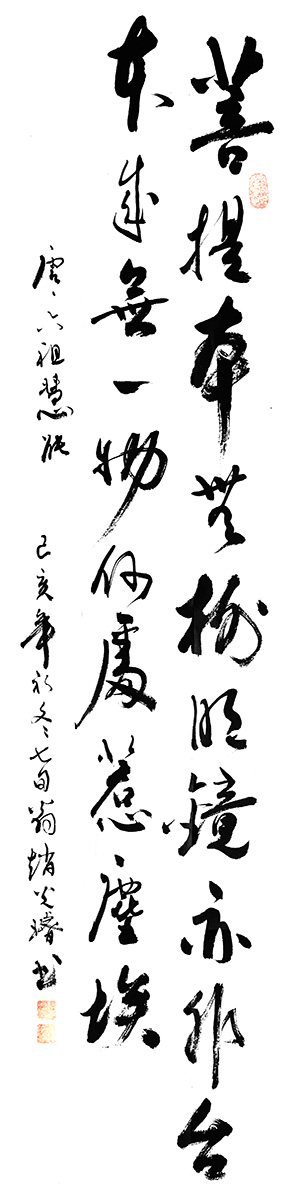 菩提本無樹明鏡亦非台
本來無一物何處惹塵埃
唐六祖慧能 己亥年初冬七旬翁趙光書